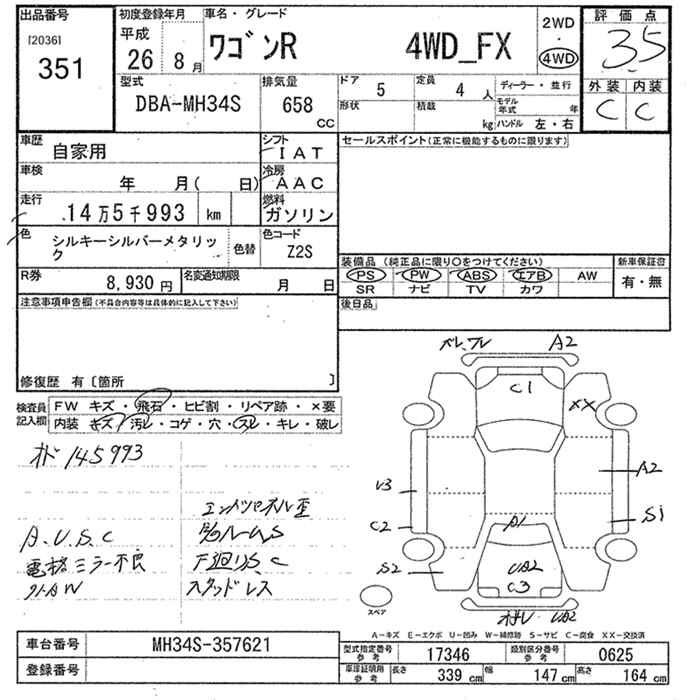 出品番号
[2036]
351
初度登録年月
平成
26 8月
車名・グレード
ワゴンR 4WD_FX
2WD
・
4WD
評価点
3.5
外装 内装
C C
型式
DBA-MH34S
排気量
658
CC
ドア
5
定員
4 人
ディーラー・並行
形状
積載
kg
モデル年式 年
ハンドル 左・右
車歴
自家用
シフト
IAT
セールスポイント(正常に機能するものに限ります)
車検
年 月( 日)
冷房
AAC
走行
14万5千993 km
燃料
ガソリン
色
シルキーシルバーメタリック
色替
色コード
Z2S
装備品 (純正品に限り〇をつけてください)
新車保証書
PS PW ABS エアB AW
SR ナビ TV カワ
有・無
R券
8,930円
名変通知期限
月 日
後日品
注意事項申告欄(不具合内容等は具体的に記入して下さい)
修復歴 有〔箇所 〕
検査員記入欄
FW キズ・飛石・ヒビ割・リペア跡・×要
内装 キズ・汚レ・コゲ・穴・スレ・キレ・破レ
オド 145993
エンドパネル歪
A.U.S.C
ルームS
電格ミラー不良
下廻りS.C
外AW
スタッドレス
A2
C1
XX
U3
A2
C2
S1
A1
S2
UA2
C3
UA2
スペア
A-キズ E-エクボ U-凹み W-補修跡 S-サビ C-腐食 XX-交換済
車台番号
MH34S-357621
登録番号
型式指定番号参考
17346
類別区分番号参考
0625
車庫証明用参考
長さ 339 cm
幅 147 cm
高さ 164 cm